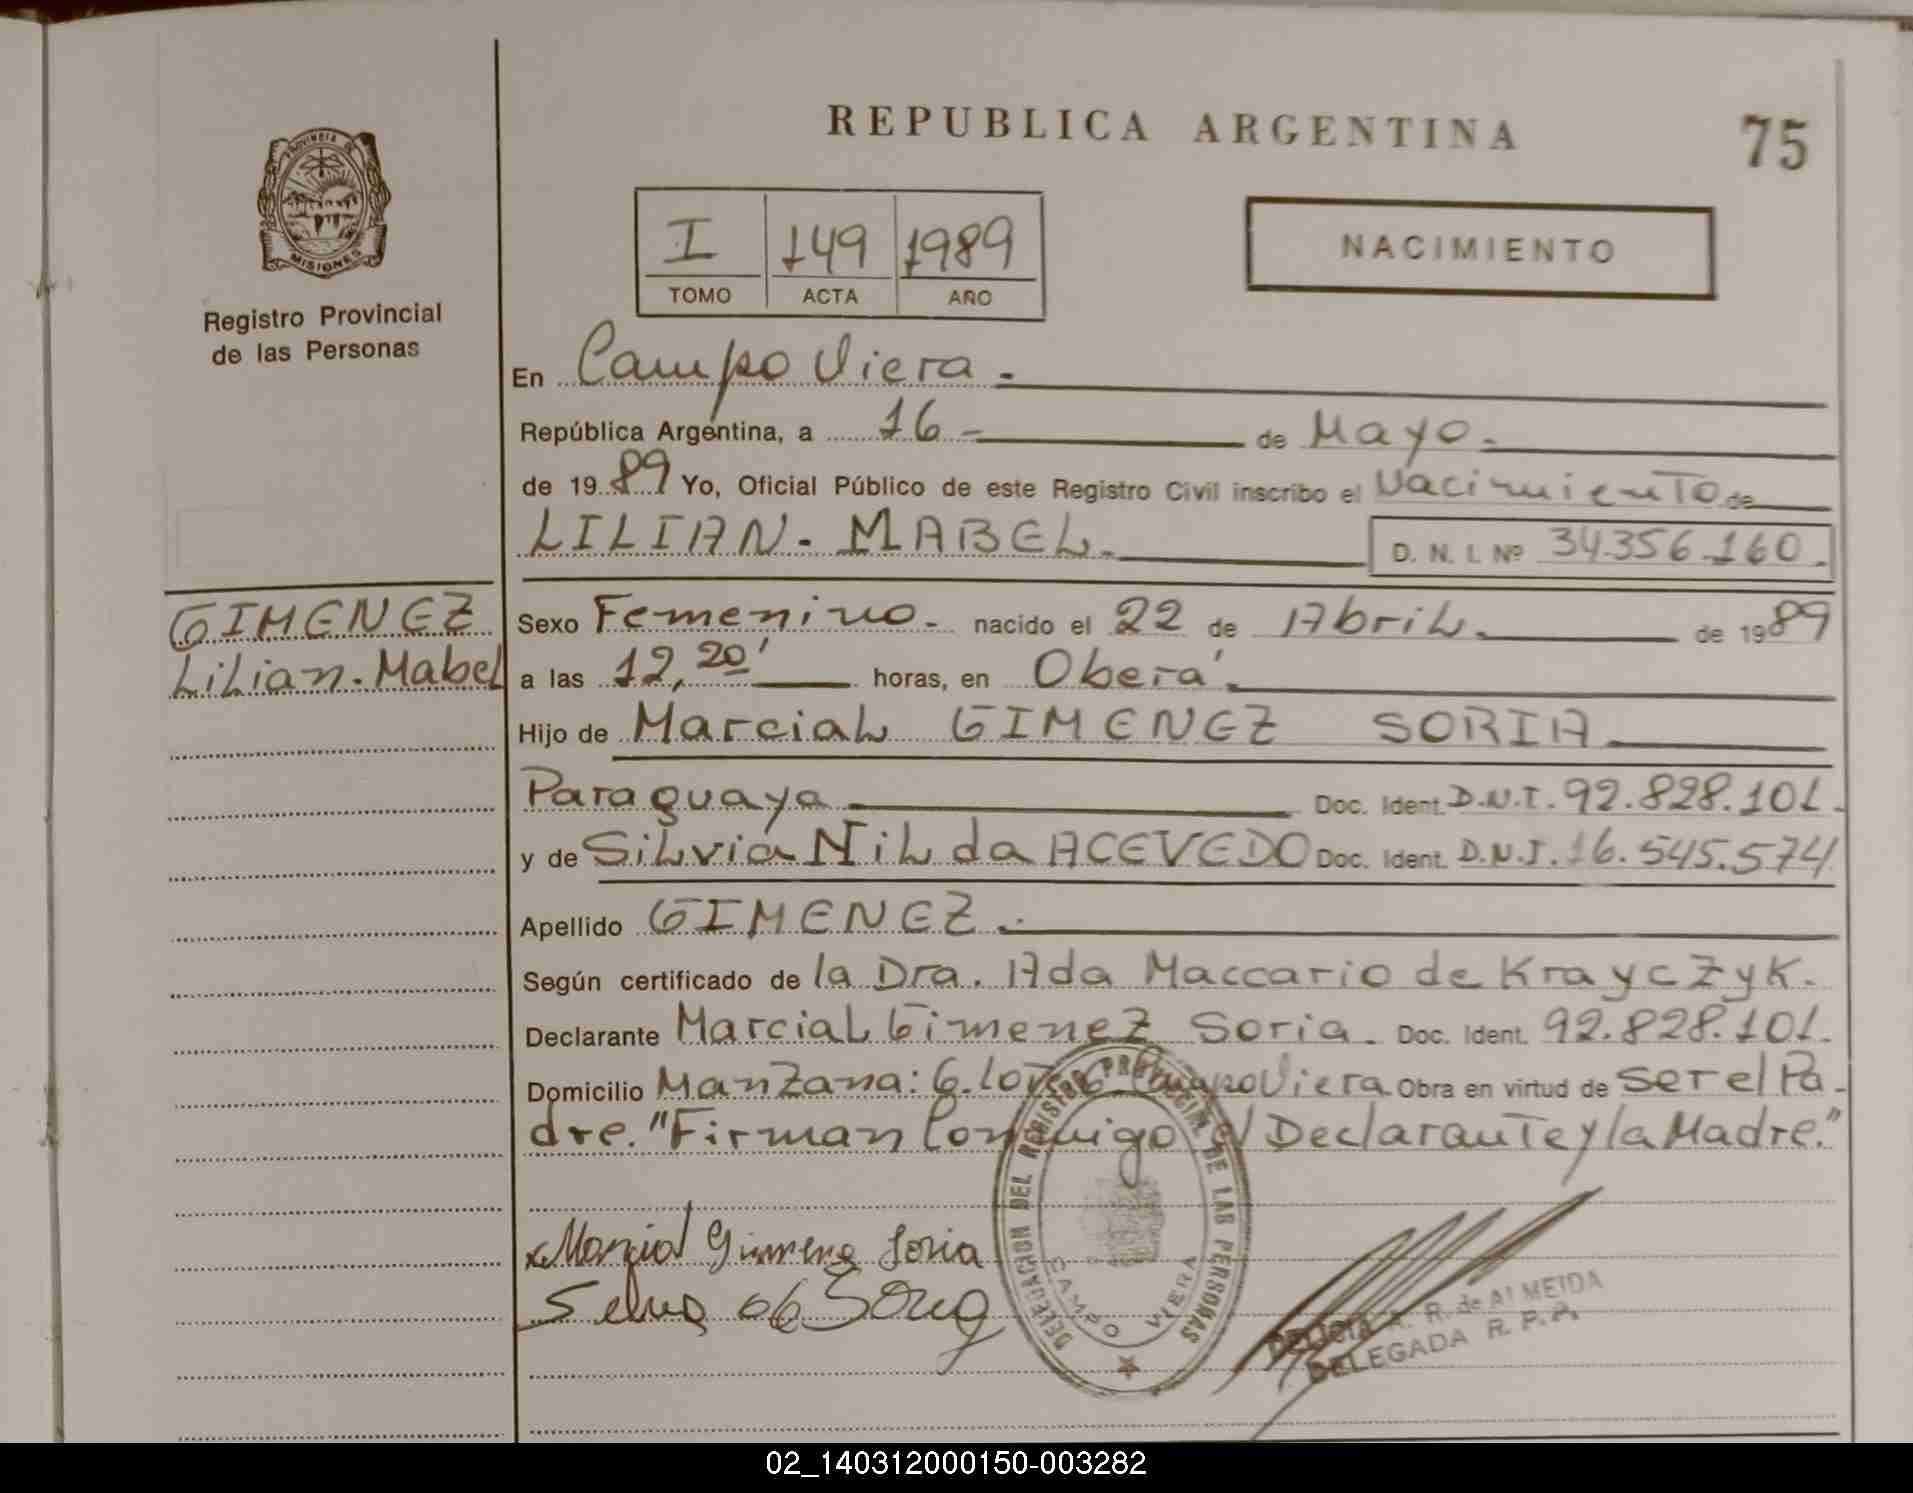 REPUBLICA ARGENTINA
75
PROVINCIA DE
MISIONES
Registro Provincial
de las Personas
I 149 1989
TOMO ACTA AÑO
NACIMIENTO
En Campo Viera.
República Argentina, a 16 de Mayo.
de 1989 Yo, Oficial Público de este Registro Civil inscribo el Nacimiento de
LILIAN. MABEL. D. N. I. Nº 34.356.160.
GIMENEZ
Lilian. Mabel
Sexo Femenino. nacido el 22 de Abril. de 1989
a las 12,20' horas, en Oberá.
Hijo de Marcial GIMENEZ SORIA
Paraguaya Doc. Ident. D.N.I. 92.828.101.
y de Silvia Nilda ACEVEDO Doc. Ident. D.N.I. 16.545.574
Apellido GIMENEZ.
Según certificado de la Dra. Ada Maccario de Krayczyk.
Declarante Marcial Gimenez Soria. Doc. Ident. 92.828.101.
Domicilio Manzana: 6. Lote 6 Campo Viera Obra en virtud de ser el Pa-
dre. "Firman Conmigo el Declarante y la Madre."
DELEGACION DEL REGISTRO PROVINCIAL DE LAS PERSONAS
CAMPO VIERA
Marcial Gimenez Soria
R. de ALMEIDA
DELEGADA R. P. P.
02_140312000150-003282